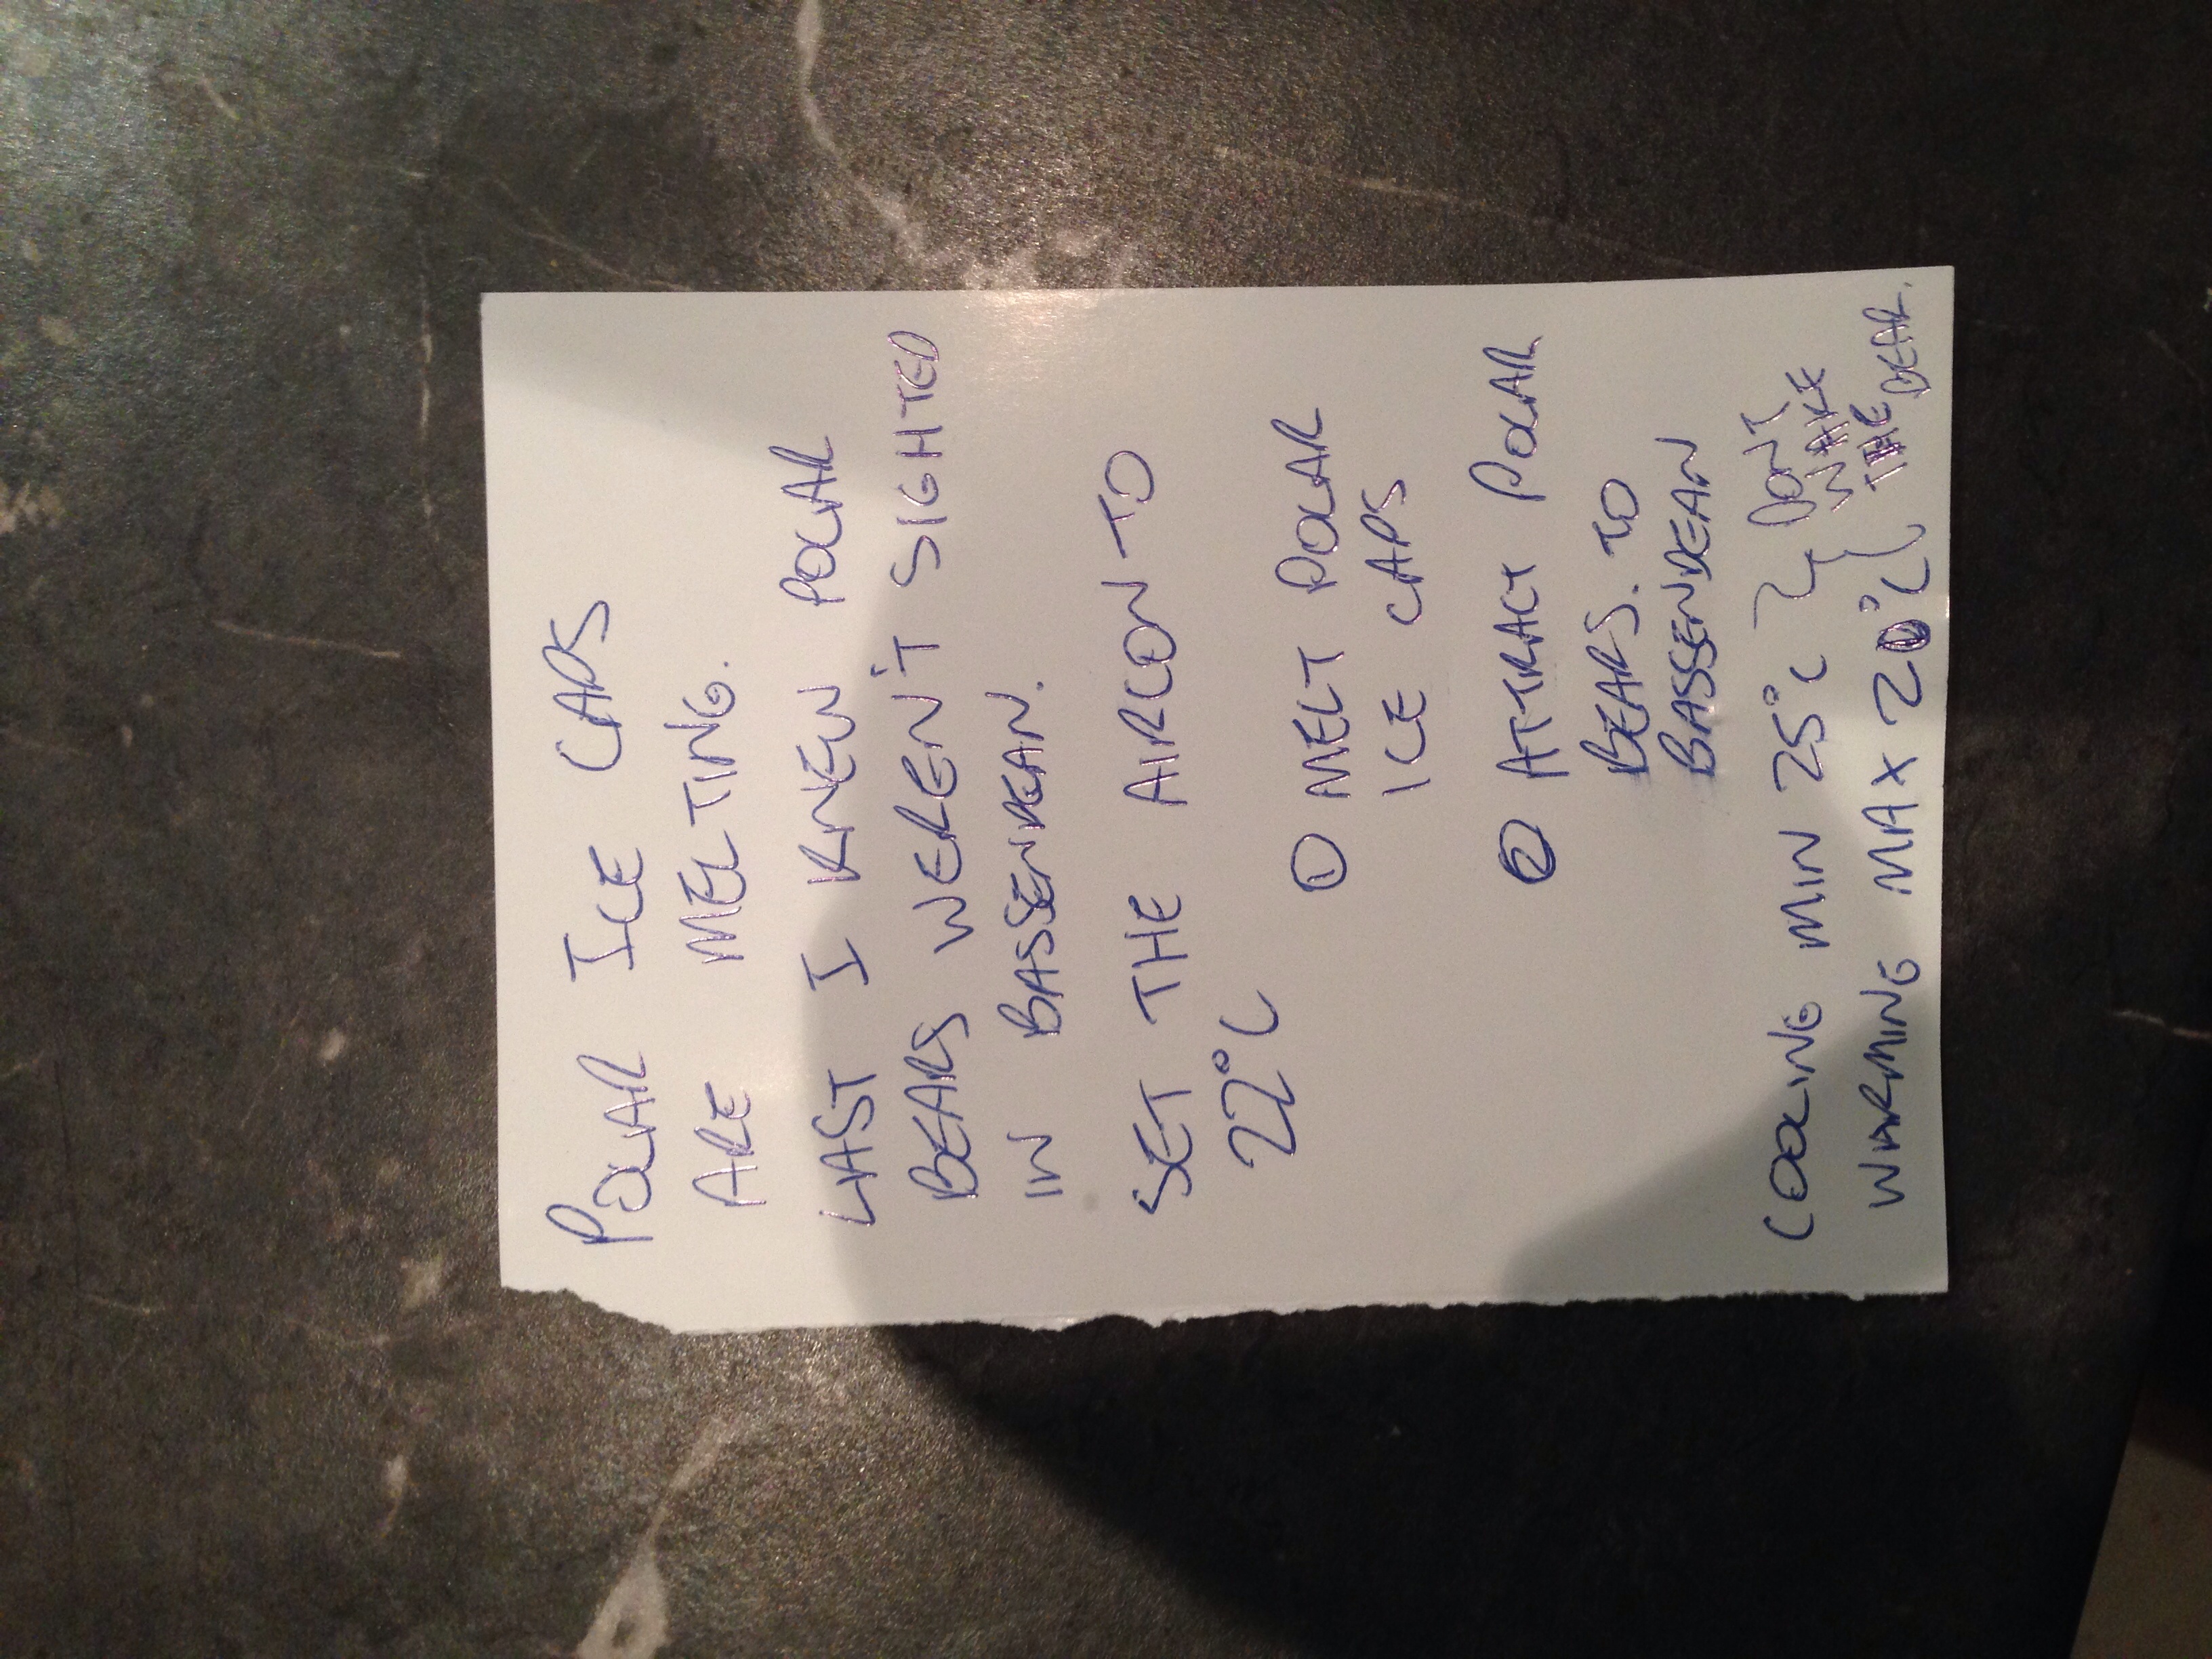 POLAR ICE CAPS
ARE MELTING.
LAST I KNEW POLAR
BEARS WEREN'T SIGHTED
IN BASSENDEAN.
SET THE AIRCON TO
22°C
① MELT POLAR
ICE CAPS
② ATTRACT POLAR
BEARS. TO
BASSENDEAN
COOLING MIN 25°C } DON'T
WAKE
WARMING MAX 20°C } THE
BEAR.